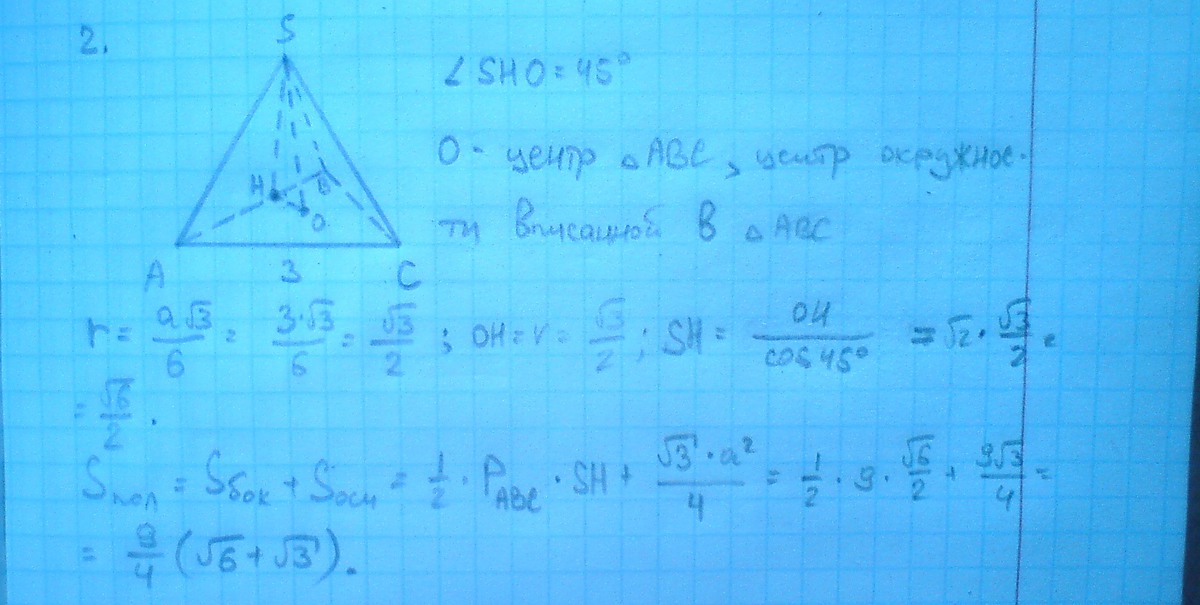 2.
S
∠SHO = 45°
O - центр △ABC, центр окружнос-
ти вписанной в △ABC
H
B
O
A 3 C
r = a√3/6 = 3·√3/6 = √3/2 ; OH = r = √3/2 ; SH = OH/cos 45° = √2 · √3/2 =
= √6/2 .
Sпол = Sбок + Sосн = 1/2 · P_ABC · SH + √3·a²/4 = 1/2 · 9 · √6/2 + 9√3/4 =
= 9/4 (√6 + √3).